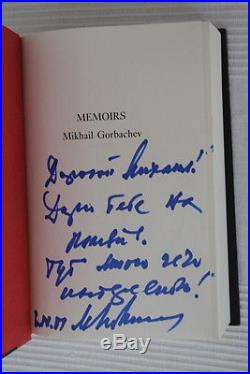 MEMOIRS
Mikhail Gorbachev
Дорогой Михаил!
Дарю Тебе на
память.
Тут много чего